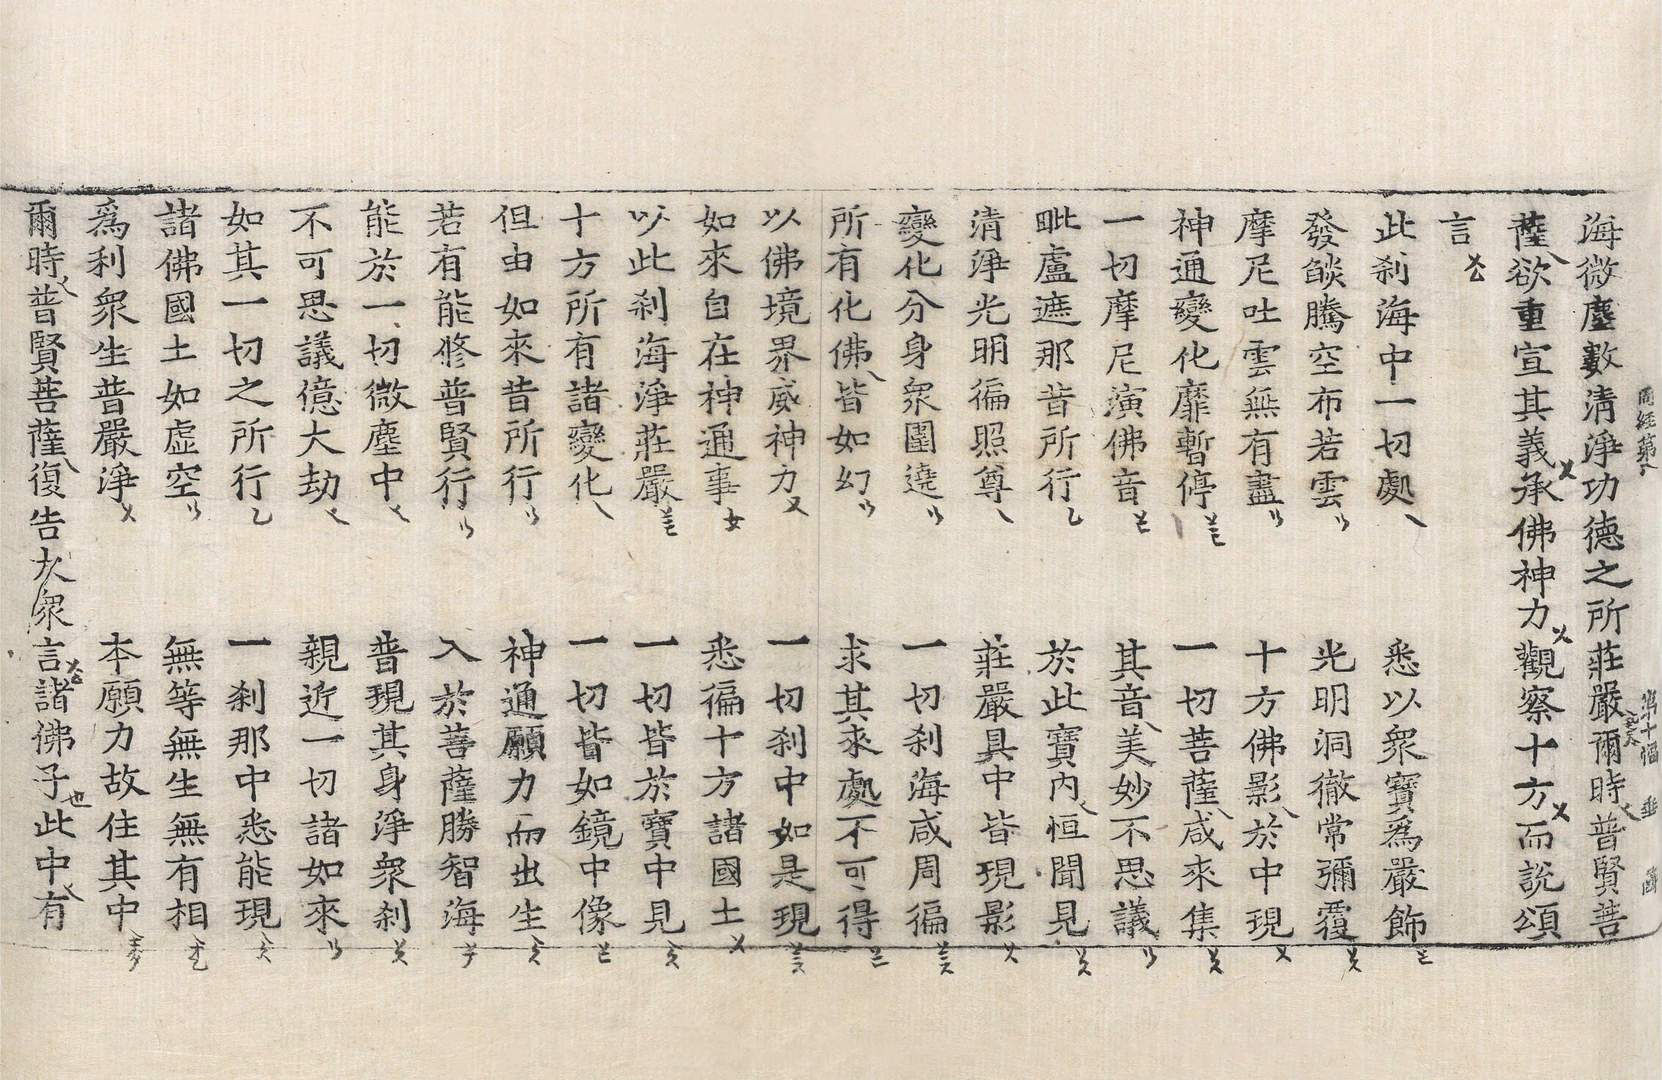 海微塵數清淨功德之所莊嚴爾時普賢菩
薩欲重宣其義承佛神力觀察十方而說頌
言
此刹海中一切處 悉以衆寶爲嚴飾
發燄騰空布若雲 光明洞徹常彌覆
摩尼吐雲無有盡 十方佛影於中現
神通變化靡暫停 一切菩薩咸來集
一切摩尼演佛音 其音美妙不思議
毗盧遮那昔所行 於此寶內恒聞見
清淨光明徧照尊 莊嚴具中皆現影
變化分身衆圍遶 一切刹海咸周徧
所有化佛皆如幻 求其來處不可得
以佛境界威神力 一切刹中如是現
如來自在神通事 悉徧十方諸國土
以此刹海淨莊嚴 一切皆於寶中見
十方所有諸變化 一切皆如鏡中像
但由如來昔所行 神通願力而出生
若有能修普賢行 入於菩薩勝智海
能於一切微塵中 普現其身淨衆刹
不可思議億大劫 親近一切諸如來
如其一切之所行 一刹那中悉能現
諸佛國土如虛空 無等無生無有相
爲利衆生普嚴淨 本願力故住其中
爾時普賢菩薩復告大衆言諸佛子此中有